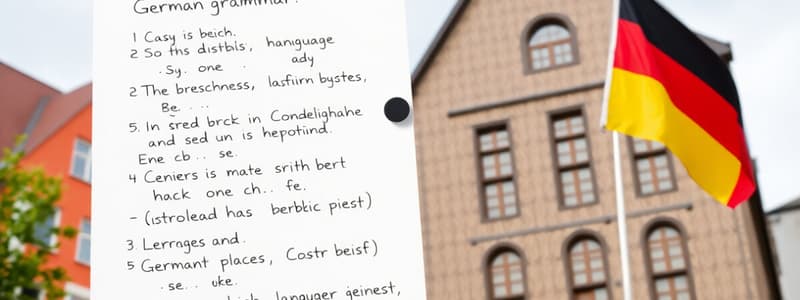 German grammar.
1 Casy is beich.
2 So ths distbis, hanguage
. Sy. one . ady
2 The breschness, lasfiirn bystes,
Be. . . .
5. In sred brck in Condelighahe
and sed un is hepotind.
Ene cb... se.
4 Ceniers is mate srith bert
hack one ch... fe.
- (istrolead has berbkic piest)
3. Lerrages and.
5 Germant places, Costr beisf)
. se... uke.
languager geinest,